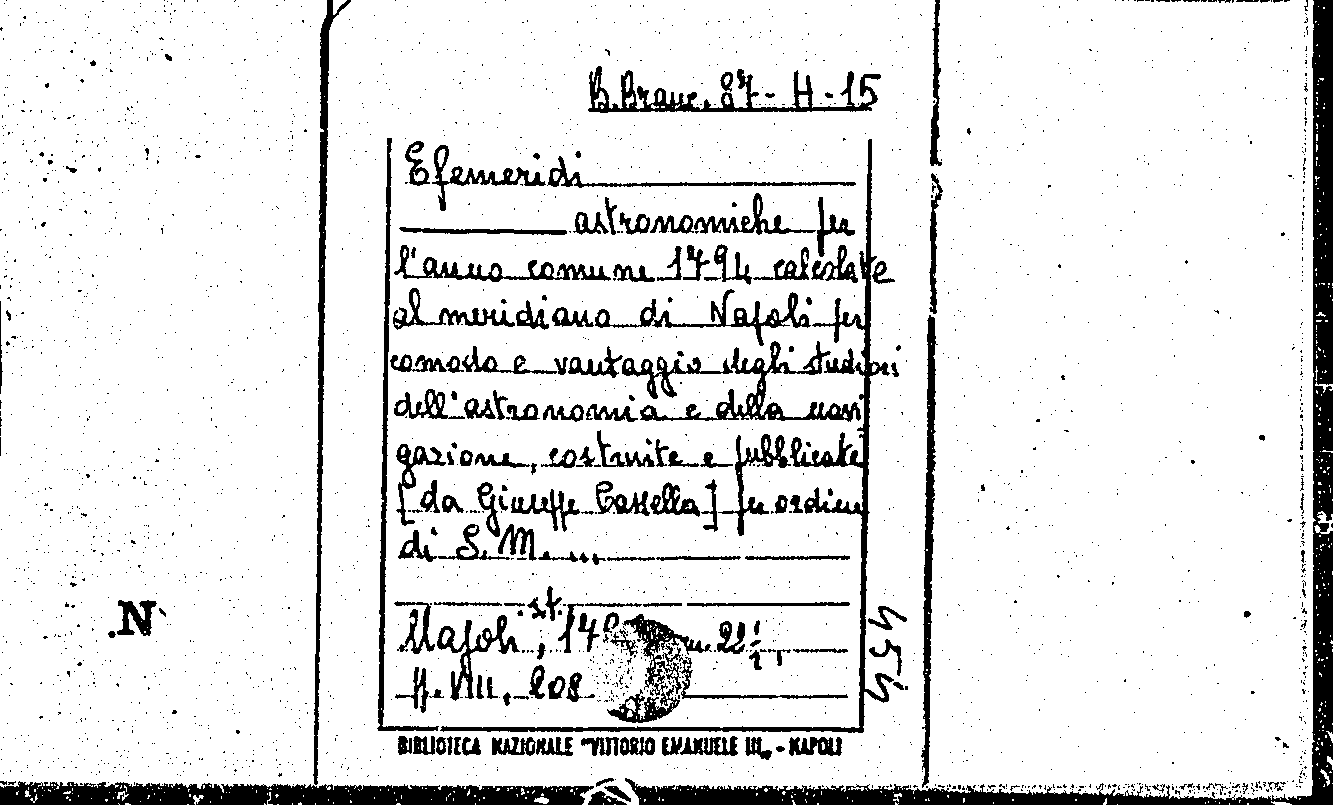 B. Branc. 87 - H - 15
Efemeridi
astronomiche per
l'anno comune 1794 calcolate
al meridiano di Napoli per
comodo e vantaggio degli studiosi
dell'astronomia e della navi
gazione, costruite e pubblicate
[da Giuseppe Cassella] per ordine
di S. M. ...
Napoli, st. 22 1/2,
pp. VIII, 208
454
BIBLIOTECA NAZIONALE "VITTORIO EMANUELE III" - NAPOLI
.N